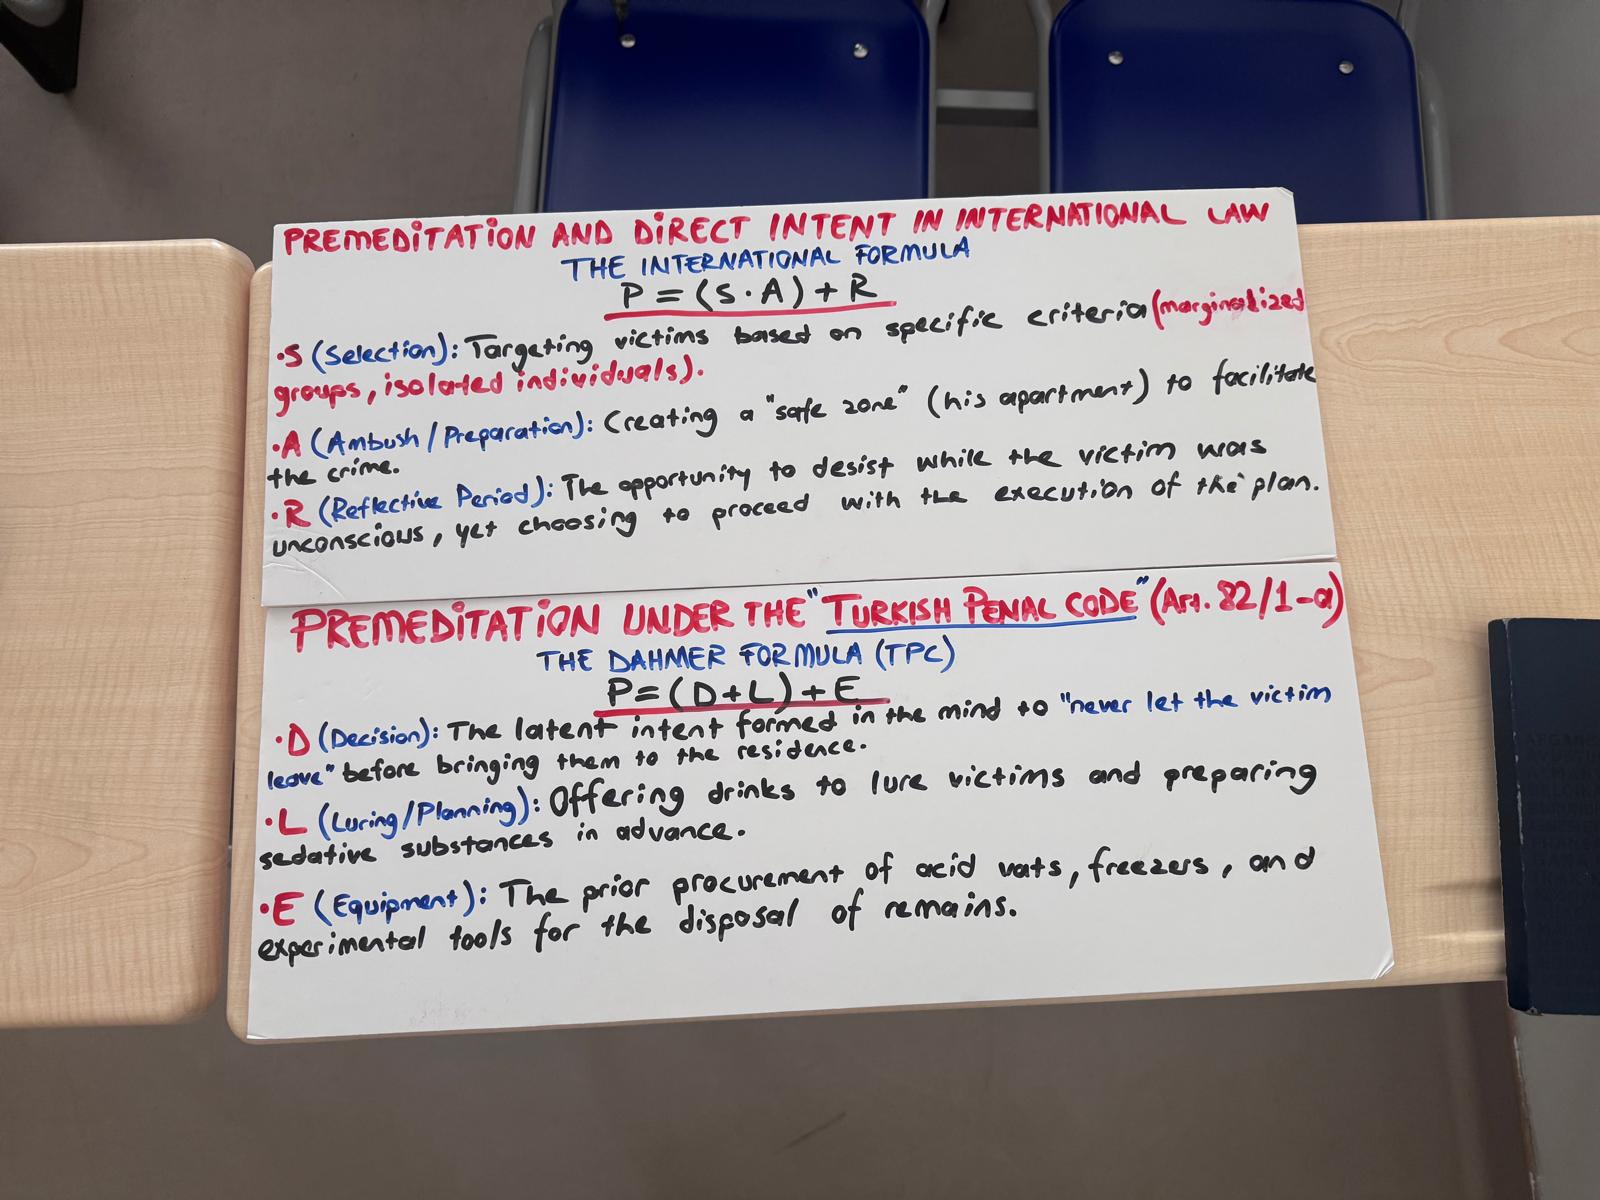 PREMEDITATION AND DIRECT INTENT IN INTERNATIONAL LAW
THE INTERNATIONAL FORMULA
P = (S · A) + R
• S (Selection): Targeting victims based on specific criteria (marginalized
groups, isolated individuals).
• A (Ambush / Preparation): Creating a "safe zone" (his apartment) to facilitate
the crime.
• R (Reflective Period): The opportunity to desist while the victim was
unconscious, yet choosing to proceed with the execution of the plan.
PREMEDITATION UNDER THE "TURKISH PENAL CODE" (Art. 82/1-a)
THE DAHMER FORMULA (TPC)
P = (D + L) + E
• D (Decision): The latent intent formed in the mind to "never let the victim
leave" before bringing them to the residence.
• L (Luring/Planning): Offering drinks to lure victims and preparing
sedative substances in advance.
• E (Equipment): The prior procurement of acid vats, freezers, and
experimental tools for the disposal of remains.